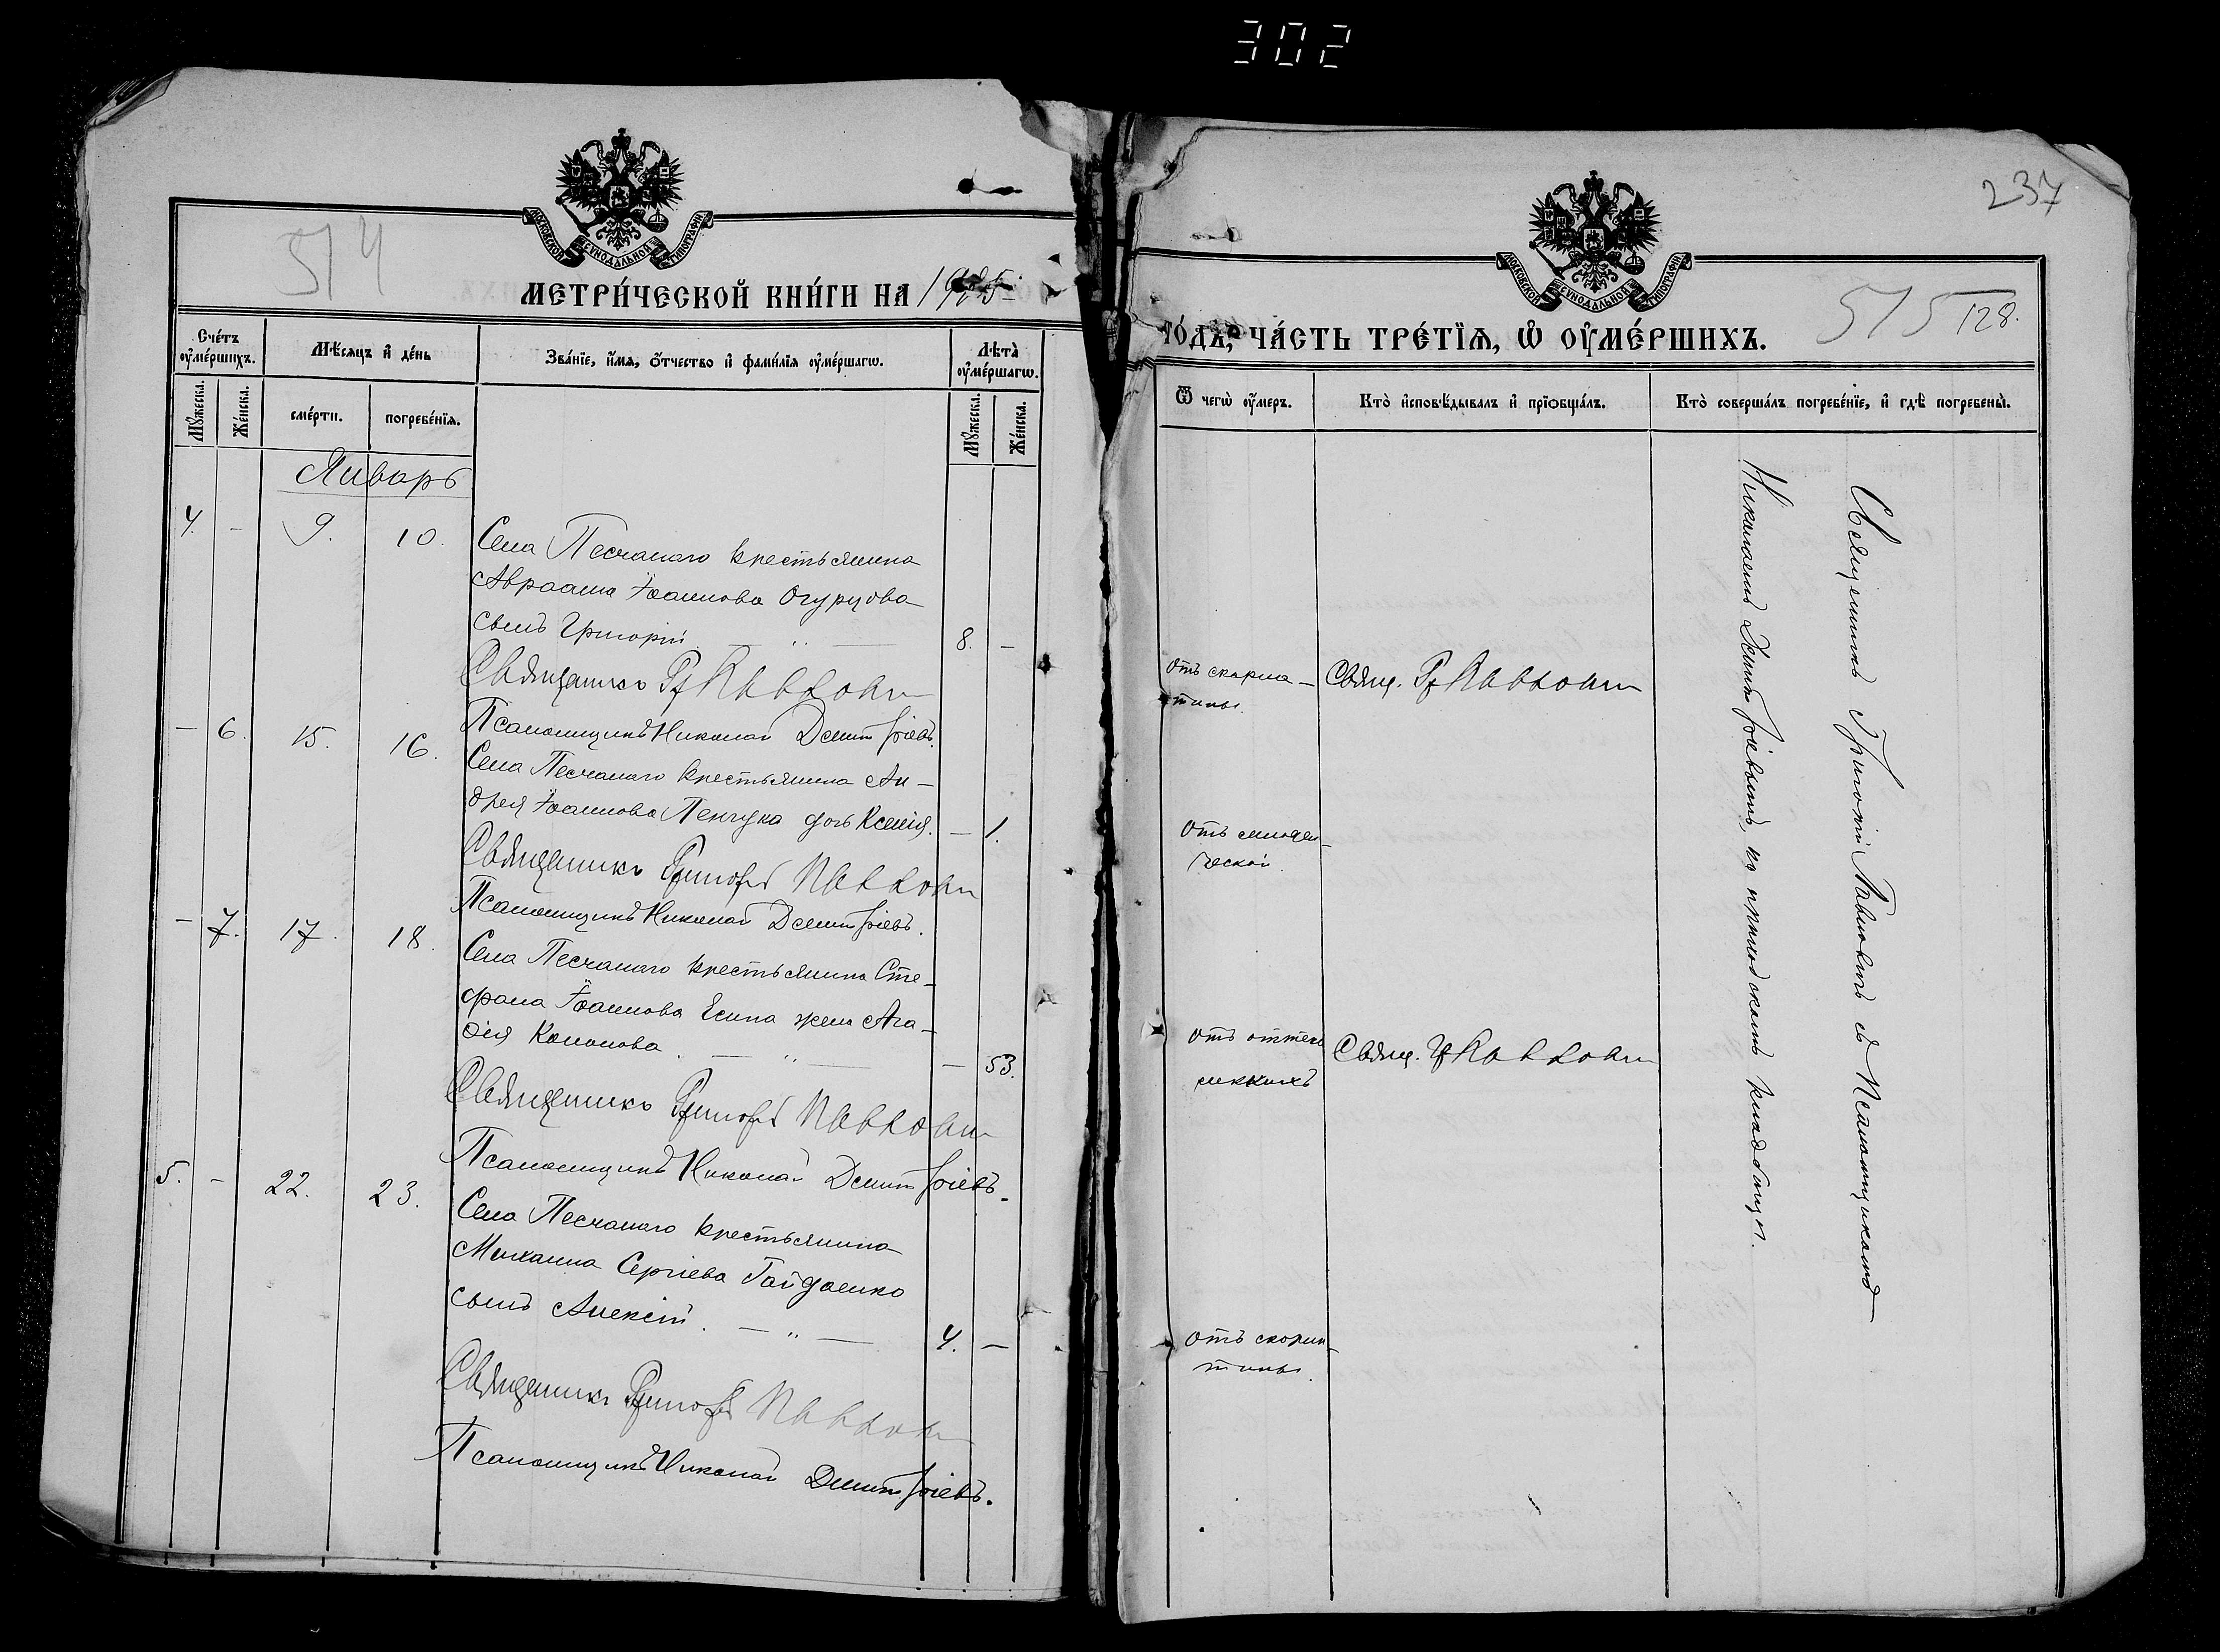 302
514
МОСКОВСКОЙ СѴНОДАЛЬНОЙ ТИПОГРАФІИ
МЕТРИ́ЧЕСКОЙ КНИ́ГИ НА 1905
Сче́тъ ᲂу҆ме́ршихъ.
Мѣ́сяцъ и҆ де́нь
Зва́нїе, и҆́мя, ѻ҆́тчество и҆ фами́лїя ᲂу҆ме́ршагѡ.
Лѣта̀ ᲂу҆ме́ршагѡ.
Мꙋ́жеска.
Же́нска.
сме́рти.
погребе́нїя.
Мꙋ́жеска.
Же́нска.
Январь
4. - 9. 10. Села Песчанаго крестьянина
Авраама Іоаннова Огурцова
сынъ Григорій — „ — 8. -
Священникъ Гр Павловъ
Псаломщикъ Николай Дмитріевъ.
- 6. 15. 16. Села Песчанаго крестьянина Ан-
дрея Іоаннова Пенчука дочь Ксенія. — 1.
Священникъ Григорій Павловъ
Псаломщикъ Николай Дмитріевъ.
- 7. 17. 18. Села Песчанаго крестьянина Сте-
фана Іоаннова Есипа жена Ага-
ѳія Кононова. — „ — — 53.
Священникъ Григорій Павловъ
Псаломщикъ Николай Дмитріевъ.
5. - 22. 23. Села Песчанаго крестьянина
Михаила Сергіева Гайдаенко
сынъ Алексій. — „ — 4. —
Священникъ Григорій Павловъ
Псаломщикъ Николай Дмитріевъ.
237
МОСКОВСКОЙ СѴНОДАЛЬНОЙ ТИПОГРАФІИ
515
128.
ГО́ДЪ, ЧА́СТЬ ТРЕ́ТЇЯ, Ѡ҆ ОУ҆МЕ́РШИХЪ.
Ѿ чегѡ̀ ᲂу҆́меръ.
Кто̀ и҆сповѣ́дывалъ и҆ прїѻбща́лъ.
Кто̀ соверша́лъ погребе́нїе, и҆ гдѣ̀ погребены̀.
отъ скарла-
тины.
Свящ. Гр Павловъ
отъ младен-
ческой.
отъ
легкихъ
Свящ. Гр Павловъ
отъ скарла-
тины.
Священникъ Григорій Павловъ съ Псаломщикомъ
Николаемъ Дмитріевымъ, на приходскомъ кладбищѣ.